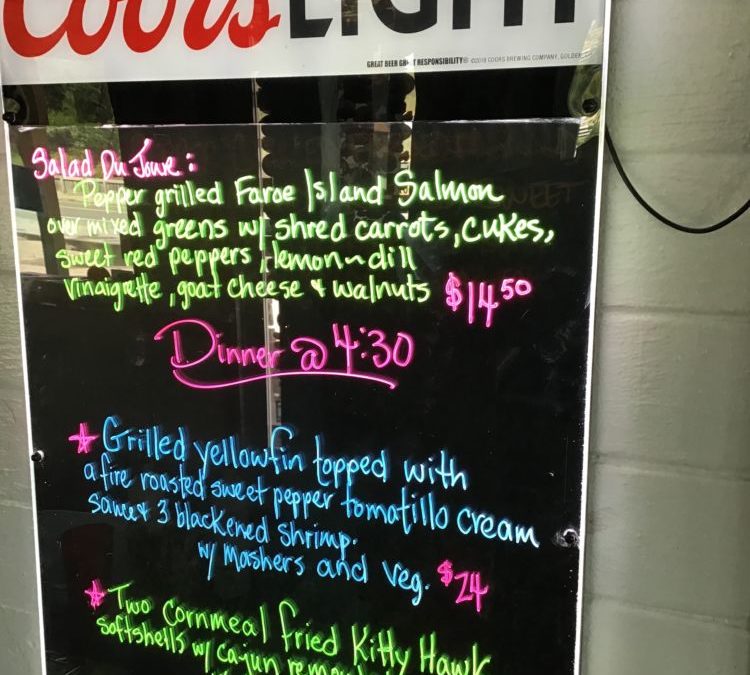 Coors LIGHT
GREAT BEER GREAT RESPONSIBILITY® ©2018 COORS BREWING COMPANY, GOLDEN
Salad Du Jour:
Pepper grilled Faroe Island Salmon
over mixed greens w/ shred carrots, cukes,
sweet red peppers, lemon-dill
vinaigrette, goat cheese & walnuts $14.50
Dinner @ 4:30
★ Grilled yellowfin topped with
a fire roasted sweet pepper tomatillo cream
sauce & 3 blackened shrimp.
w/ Mashers and veg. $24
★ Two Cornmeal fried Kitty Hawk
softshells w/ cajun